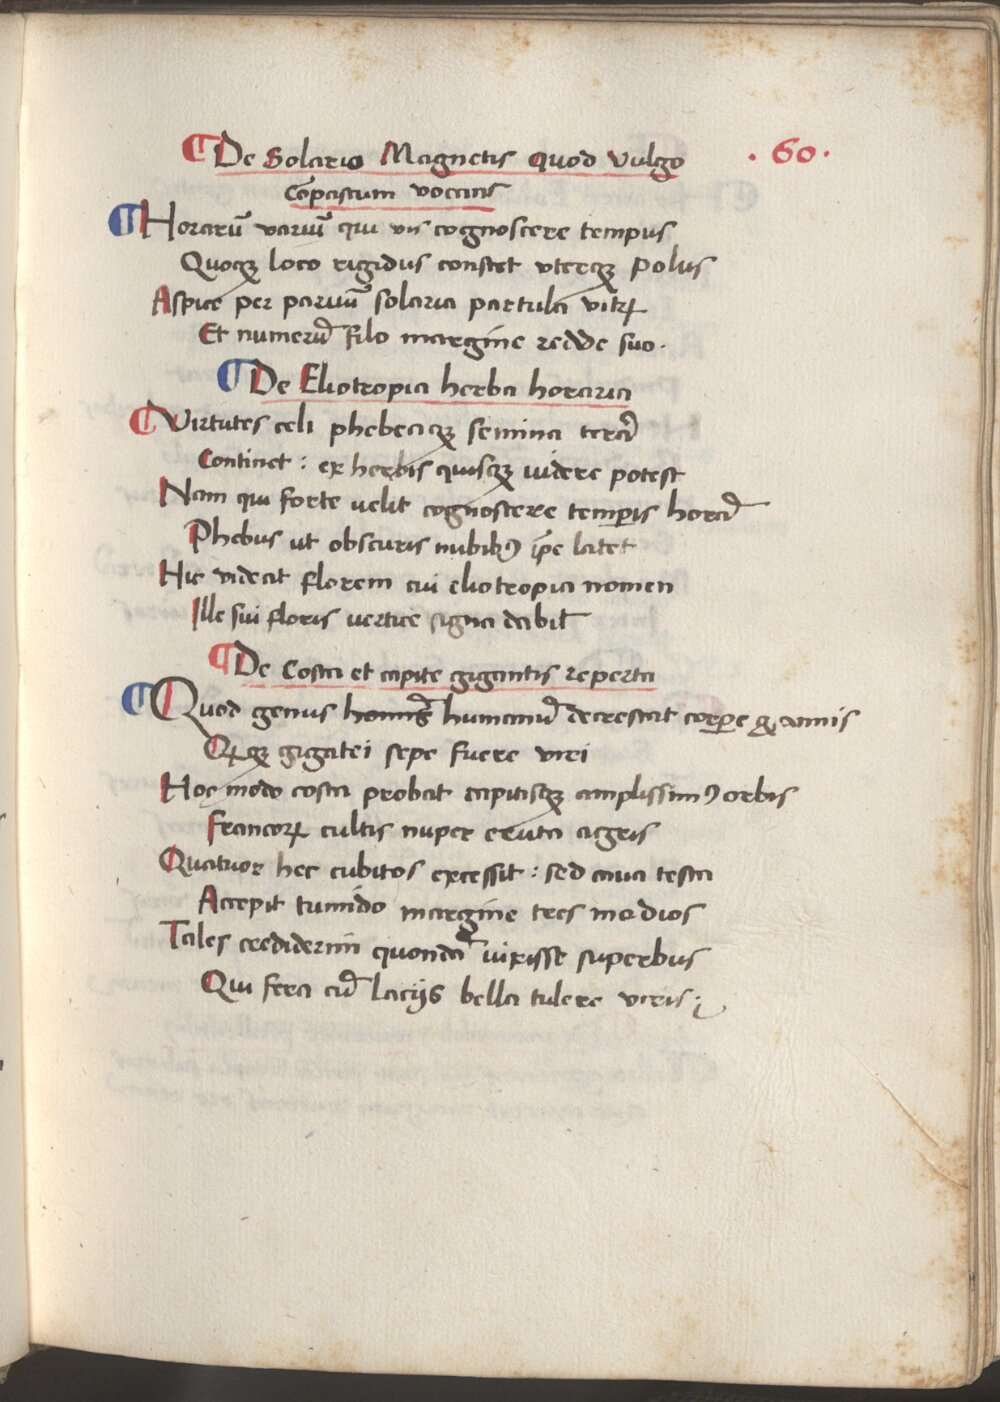 De Solario Magnetis Quod Vulgo · 60 ·
Cõpastum vocant
Horarũ variũ qui vis cognoscere tempus
Quoqꝫ loco rigidus constet uterqꝫ polus
Aspice per paruũ solaria partula vitrꝝ
Et numerũ filo margine redde suo.
De Eliotropia herba horaria
Virtutes celi phebeaqꝫ semina terrã
Continet : ex herbis quisqꝫ videre potest
Nam qui forte velit cognoscere temp̄is horã
Phebus ut obscuris nubibꝰ ip̄e latet
Hic videat florem cui eliotropia nomen
Ille sui floris vertice signa dabit
De Costa et capite gigantis reperta
Quod genus humanũ decrescat corp̄e & annis
gigãtei sepe fuere viri
Hoc modo costa probat capitisqꝫ amplissimꝰ orbis
francoꝝ cultis nuper eruta agris
Quatuor hec cubitos excessit : sed caua testa
Accepit tumido margine tres modios
Tales crediderim quondã vixisse superbus
Qui fera cũ laciis bella tulere viris ;